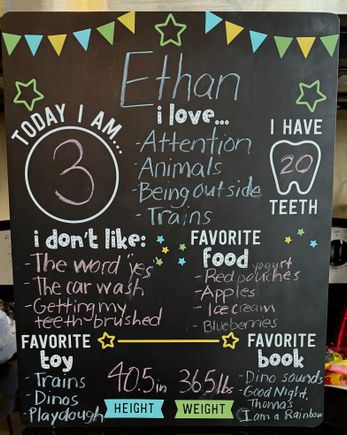 Ethan
TODAY I AM...
3
i love...
-Attention
-Animals
-Being outside
-Trains
I HAVE
20
TEETH
i don't like:
-The word "yes"
-The car wash
-Getting my
teeth brushed
FAVORITE
food
yogurt
-Red pouches
-Apples
-Ice cream
-Blueberries
FAVORITE
toy
-Trains
-Dinos
-Playdough
40.5in
HEIGHT
36.5lbs
WEIGHT
FAVORITE
book
-Dino sounds
-Good Night,
Thomas
-I am a Rainbow